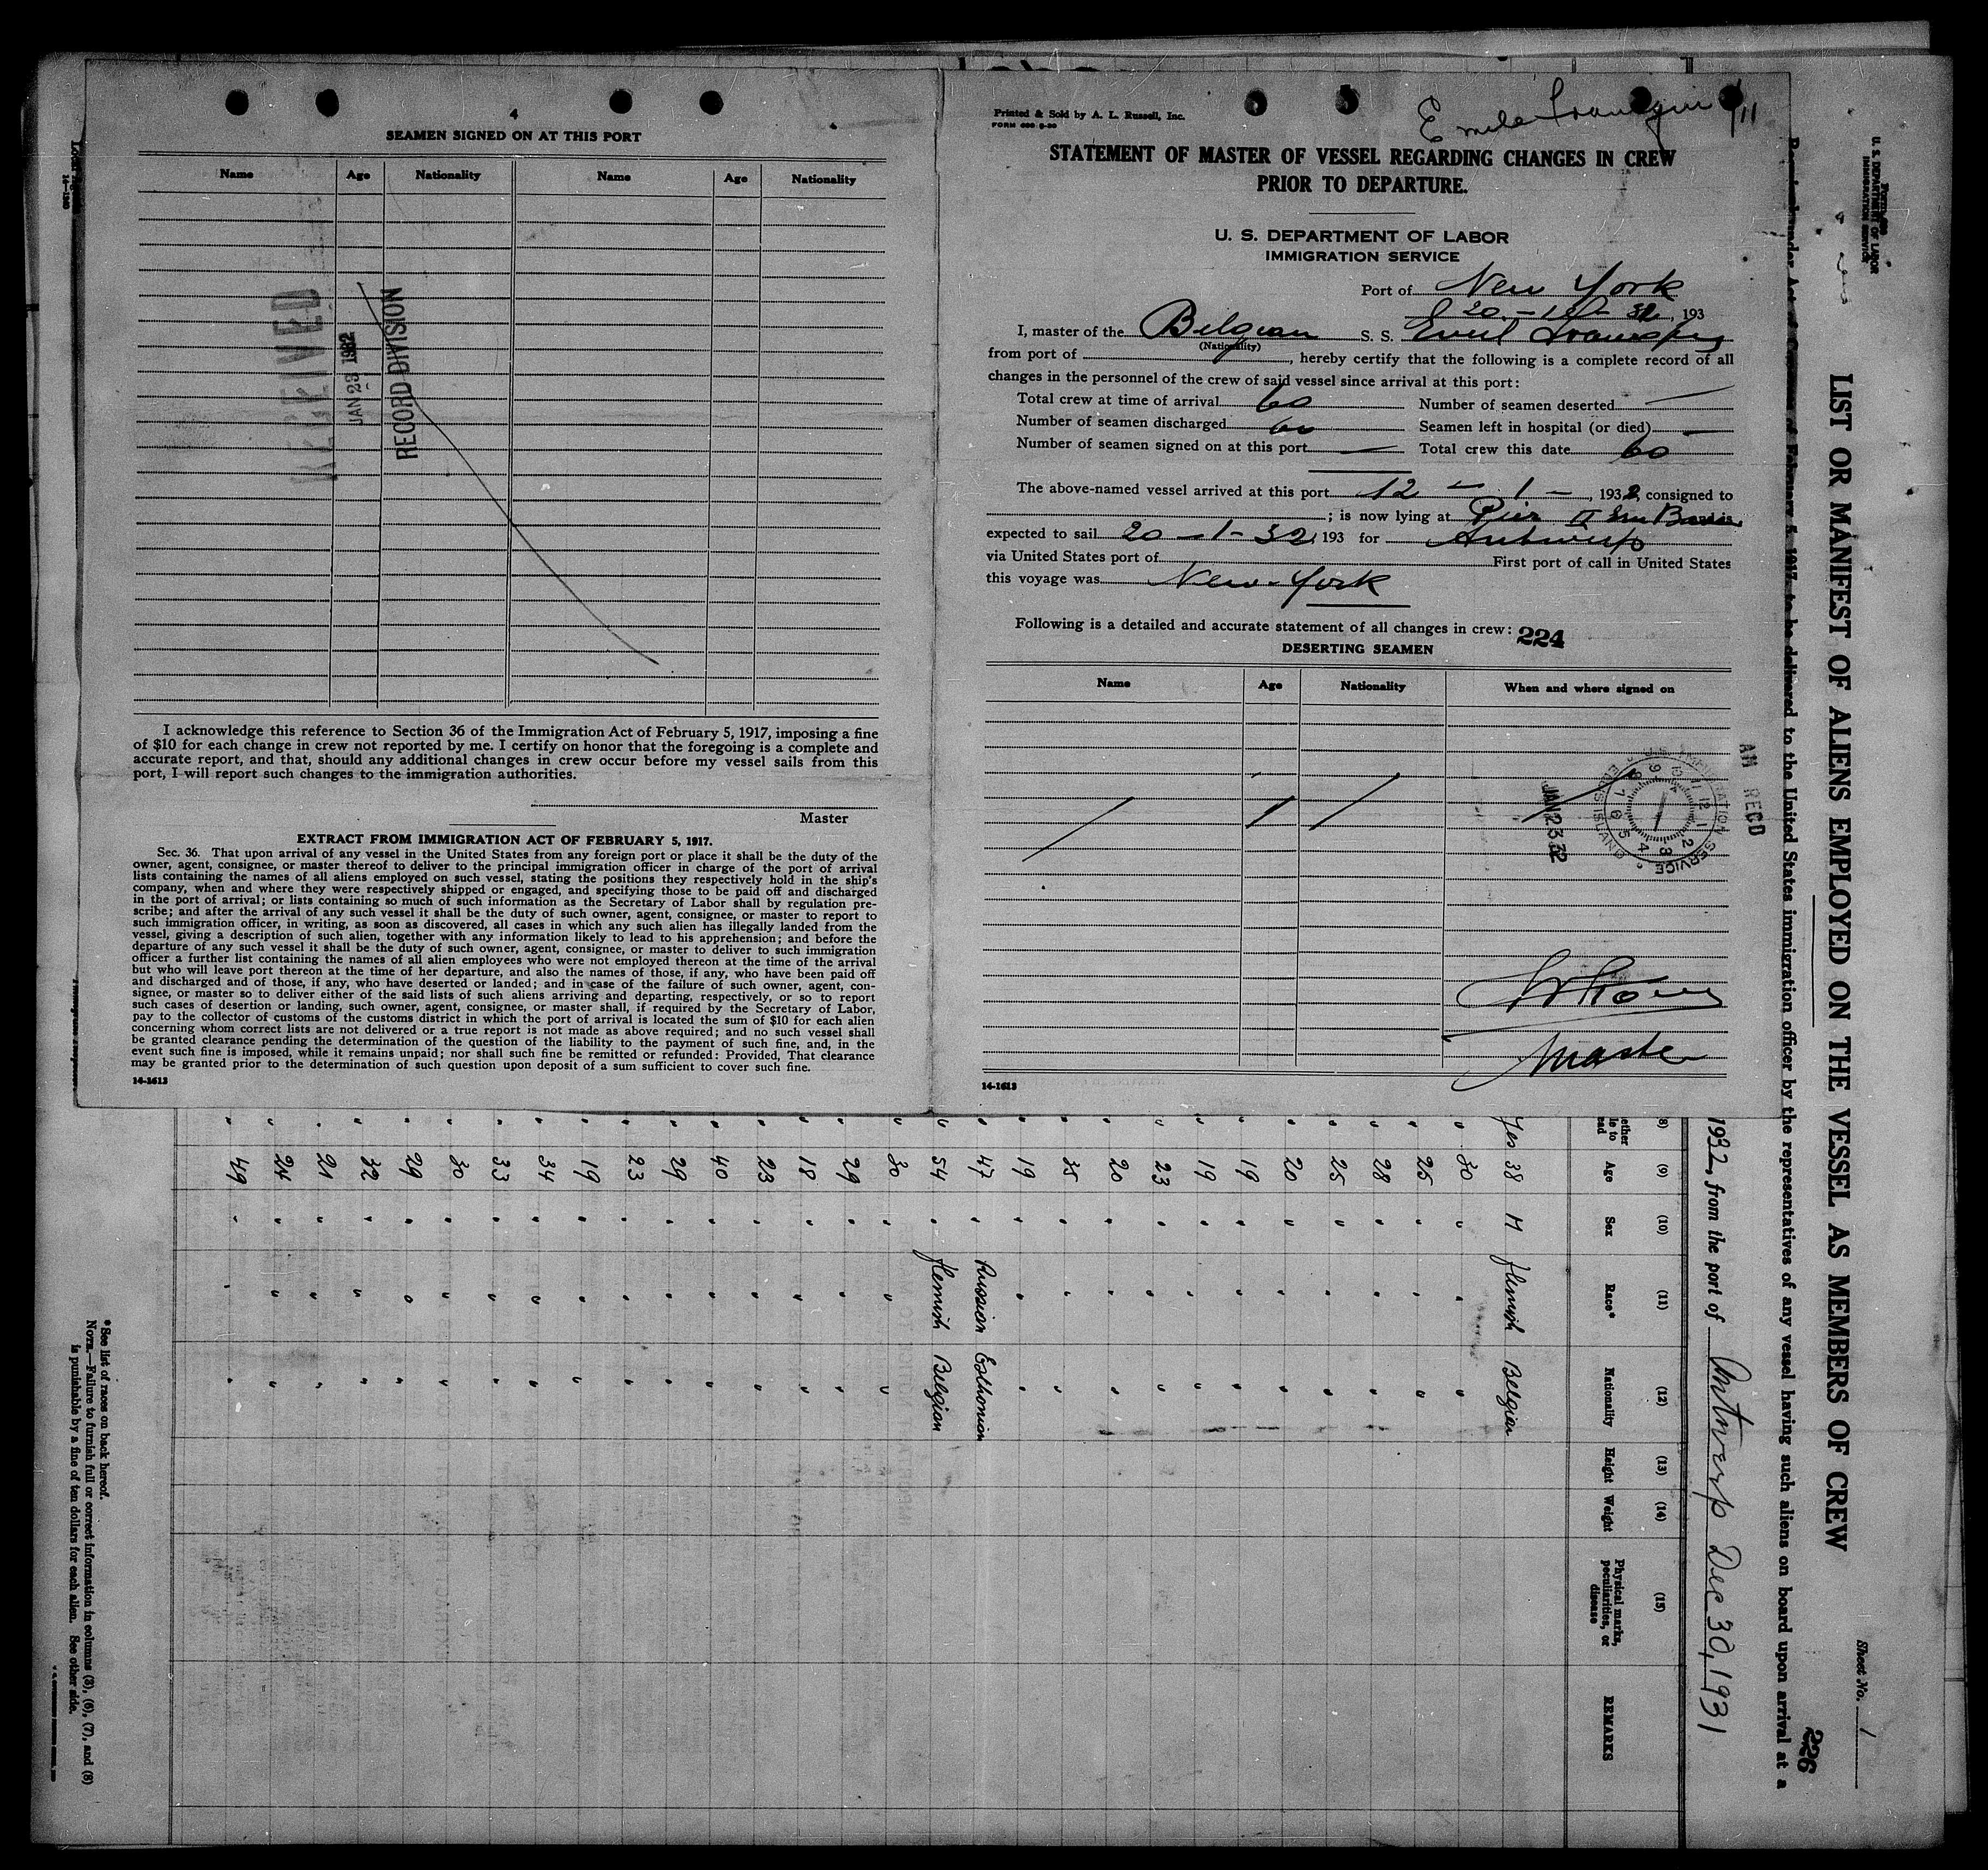 4
SEAMEN SIGNED ON AT THIS PORT
Name Age Nationality Name Age Nationality
RECEIVED
JAN 23 1932
RECORD DIVISION
I acknowledge this reference to Section 36 of the Immigration Act of February 5, 1917, imposing a fine
of $10 for each change in crew not reported by me. I certify on honor that the foregoing is a complete and
accurate report, and that, should any additional changes in crew occur before my vessel sails from this
port, I will report such changes to the immigration authorities.
Master
EXTRACT FROM IMMIGRATION ACT OF FEBRUARY 5, 1917.
Sec. 36. That upon arrival of any vessel in the United States from any foreign port or place it shall be the duty of the
owner, agent, consignee, or master thereof to deliver to the principal immigration officer in charge of the port of arrival
lists containing the names of all aliens employed on such vessel, stating the positions they respectively hold in the ship's
company, when and where they were respectively shipped or engaged, and specifying those to be paid off and discharged
in the port of arrival; or lists containing so much of such information as the Secretary of Labor shall by regulation pre-
scribe; and after the arrival of any such vessel it shall be the duty of such owner, agent, consignee, or master to report to
such immigration officer, in writing, as soon as discovered, all cases in which any such alien has illegally landed from the
vessel, giving a description of such alien, together with any information likely to lead to his apprehension; and before the
departure of any such vessel it shall be the duty of such owner, agent, consignee, or master to deliver to such immigration
officer a further list containing the names of all alien employees who were not employed thereon at the time of the arrival
but who will leave port thereon at the time of her departure, and also the names of those, if any, who have been paid off
and discharged and of those, if any, who have deserted or landed; and in case of the failure of such owner, agent, con-
signee, or master so to deliver either of the said lists of such aliens arriving and departing, respectively, or so to report
such cases of desertion or landing, such owner, agent, consignee, or master shall, if required by the Secretary of Labor,
pay to the collector of customs of the customs district in which the port of arrival is located the sum of $10 for each alien
concerning whom correct lists are not delivered or a true report is not made as above required; and no such vessel shall
be granted clearance pending the determination of the question of the liability to the payment of such fine, and, in the
event such fine is imposed, while it remains unpaid; nor shall such fine be remitted or refunded: Provided, That clearance
may be granted prior to the determination of such question upon deposit of a sum sufficient to cover such fine.
14-1613
Printed & Sold by A. L. Russell, Inc.
Emile Francqui
STATEMENT OF MASTER OF VESSEL REGARDING CHANGES IN CREW
PRIOR TO DEPARTURE.
U. S. DEPARTMENT OF LABOR
IMMIGRATION SERVICE
Port of New York
193
I, master of the Belgian S. S. Emil Francqui
(Nationality)
from port of , hereby certify that the following is a complete record of all
changes in the personnel of the crew of said vessel since arrival at this port:
Total crew at time of arrival 60 Number of seamen deserted —
Number of seamen discharged Seamen left in hospital (or died) —
Number of seamen signed on at this port — Total crew this date 60
The above-named vessel arrived at this port 12 — 1 — , 1932, consigned to
; is now lying at Pier
expected to sail 20 - 1 - 32, 193 for Antwerp
via United States port of First port of call in United States
this voyage was New-York
Following is a detailed and accurate statement of all changes in crew: 224
DESERTING SEAMEN
Name Age Nationality When and where signed on
JAN 23 32
U.S. IMMIGRATION SERVICE ELLIS ISLAND
12 1 2 3 4 5 6 7 8 9 10 11
AM RECD
Master
14-1613
U. S. DEPARTMENT OF LABOR
IMMIGRATION SERVICE
Sheet No. 1
226
LIST OR MANIFEST OF ALIENS EMPLOYED ON THE VESSEL AS MEMBERS OF CREW
February 5, 1917, to be delivered to the United States immigration officer by the representatives of any vessel having such aliens on board upon arrival at a
1932, from the port of Antwerp Dec 30, 1931
(8) (9) (10) (11) (12) (13) (14) (15)
Age Sex Race* Nationality Height Weight Physical marks, peculiarities, or disease REMARKS
Yes 38 M flemish Belgian
" 30 " " "
" 25 " " "
" 28 " " "
" 25 " " "
" 20 " " "
" 19 " " "
" 19 " " "
" 23 " " "
" 20 " " "
" 35 " " "
" 19 " " "
" 47 " Russian Esthonian
" 54 " flemish Belgian
" 30 " " "
" 29 " " "
" 18 " " "
" 23 " " "
" 40 " " "
" 29 " " "
" 23 " " "
" 19 " " "
" 34 " " "
" 33 " " "
" 30 " " "
" 29 " " "
" 32 " " "
" 21 " " "
" 24 " " "
" 49 " " "
*See list of races on back hereof.
NOTE.—Failure to furnish full or correct information in columns (3), (6), (7), and (8)
is punishable by a fine of ten dollars for each alien. See other side.